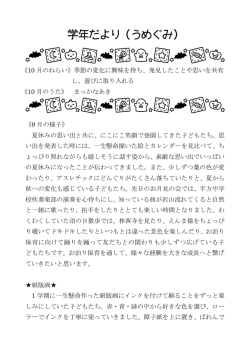 学年だより（うめぐみ）
《10月のねらい》季節の変化に興味を持ち、発見したことや思いを共有
し、遊びに取り入れる
《10月のうた》　まっかなあき
《9月の様子》
夏休みの思い出と共に、にこにこ笑顔で登園してきた子どもたち。思
い出を発表した時には、一生懸命描いた絵とカレンダーを見比べて、ち
ょっぴり照れながらも嬉しそうに話す姿から、素敵な思い出でいっぱい
の夏休みになったことが伝わってきました。また、少しずつ葉の色が変
わったり、アスレチックにどんぐりがたくさん落ちていたりと、夏から
秋への変化も感じている子どもたち。先日のお月見の会では、平方中学
校吹奏楽部の演奏を心待ちにし、知っている曲が沢山流れてくると自然
と体を動かしたり、口ずさんだりと楽しいひとときになりました。わく
わくで待っていた雨の日さんぽでは、林西寺を見たり、ええ様をちょっぴり
覗いてドキドキしたりといつもと違った雰囲気も楽しみました。お泊り
保育に向けて踊りを踊って友だちとの関わりも少しずつ広げている子
どもたちです。お泊り保育を通して、様々な経験を大きな成長へと繋げ
ていきたいと思います。
★紙版画★
1学期に一生懸命作った紙版画にインクを付けて刷ることをずっと楽
しみにしていた子どもたち。赤・青・緑の中から好きな色を選び、ロー
ラーでインクを丁寧に塗っていきました。障子紙を上に置き、ばれんで